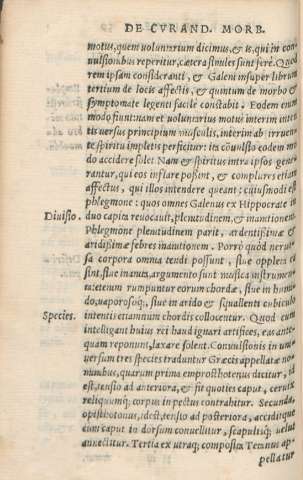 DE CVRAND. MORB.
motus, quem voluntarium dicimus, & is, qui in con
vulsionibus reperitur, cætera similes sunt ferè. Quod
rem ipsam consideranti, & Galeni insuper librum
tertium de locis affectis, & quintum de morbo &
symptomate legenti facilè constabit. Eodem enim
modo fiunt: nam et voluntarius motus interim inten
tis versus principium musculis, interim ab irruen
te spiritu impletis perficitur: ita cōvulsio eodem mo
do accidere solet Nam & spiritus intra ipsos gene
rantur, qui eos inflare possint, & complures etiam
affectus, qui illos intendere queant: cuiusmodi est
phlegmone: quos omnes Galenus ex Hippocrate in
Divisio. duo capita revocavit, plenitudinem, & inanitionem.
Phlegmone plenitudinem parit, ardentissimæ &
aridissimæ febres inanitionem. Porrò quòd nervo
sa corpora omnia tendi possunt, sive oppleta
sint, sive inanita, argumento sunt musica instrumen
ta: etenim rumpuntur eorum chordæ, sive in humi
do, vaporosoq;, sive in arido & squallenti cubiculo
Species. intentis etiamnum chordis collocentur. Quod cum
intelligant huius rei haud ignari artifices, eas ante
quam reponunt, laxare solent. Convulsionis in uni
versum tres species traduntur Græcis appellatæ no
minibus, quarum prima emprosthotenus dicitur, id
est, tensio ad anteriora, & fit quoties caput, cervix
reliquumq; corpus in pectus contrahitur. Secunda,
opisthotonus, idest, tensio ad posteriora, acciditque
cum caput in dorsum convellitur, scapulisq; velut
annectitur. Tertia ex utraq; composita Tetanus ap-
pellatur